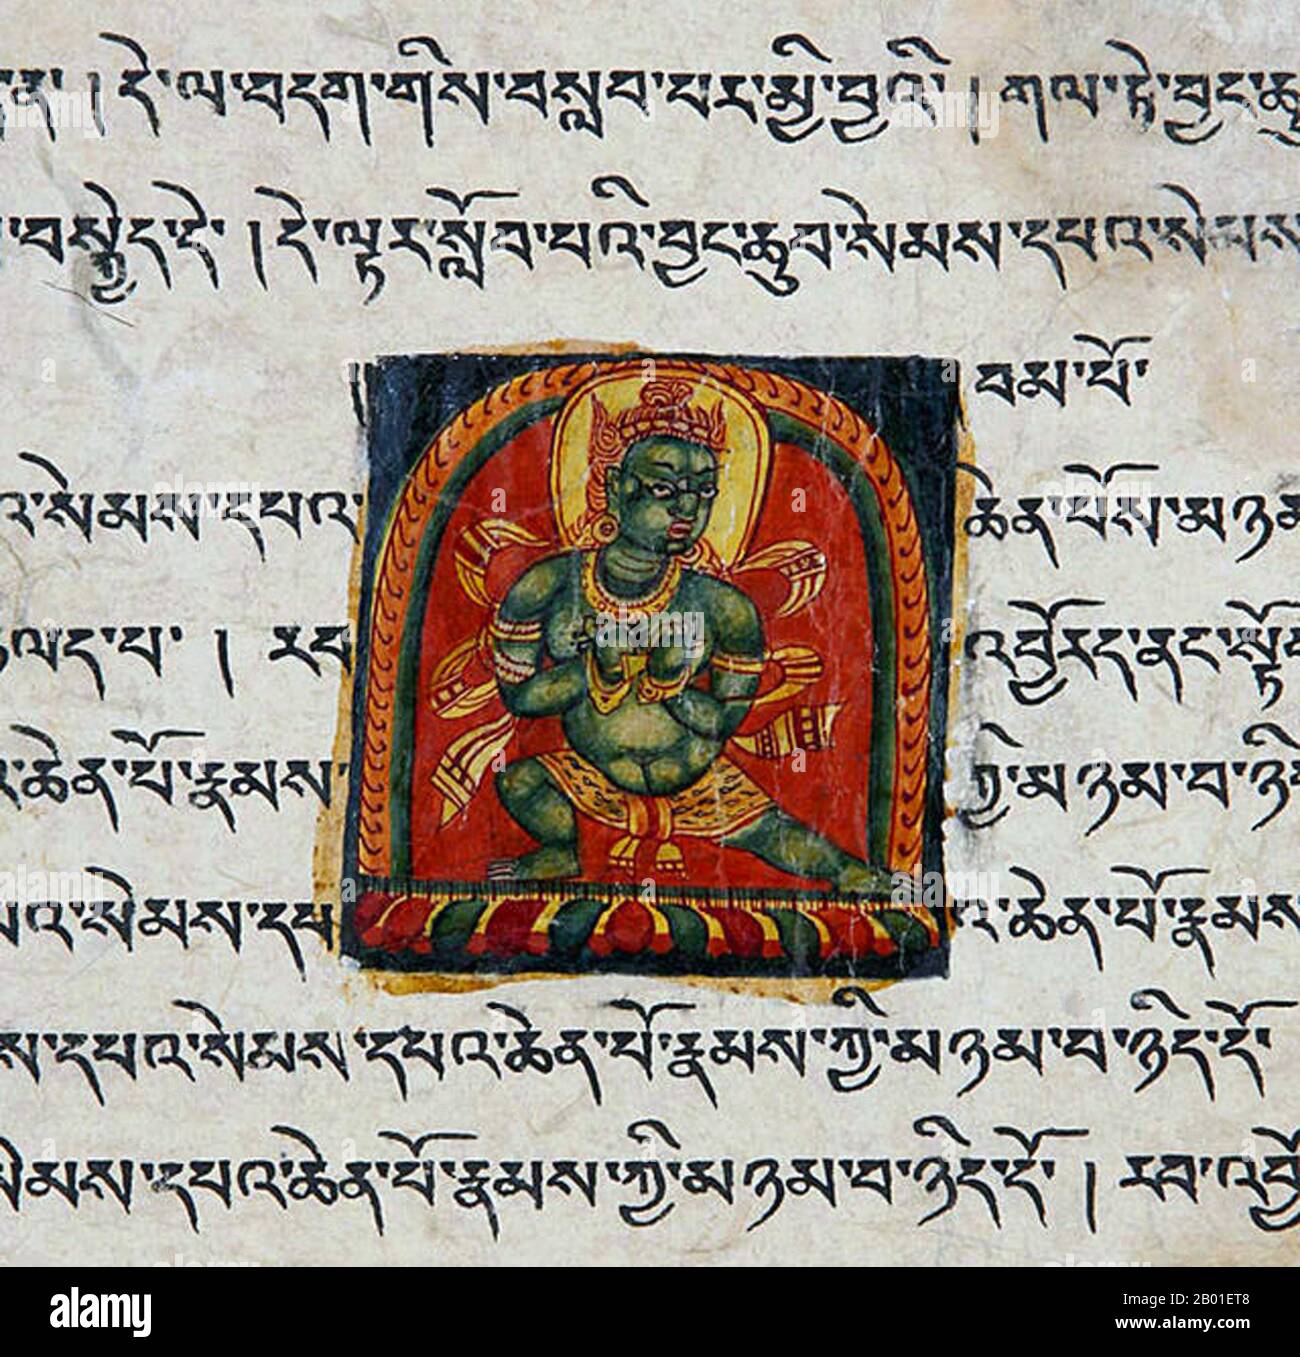 ན་ །དེ་ལ་བདག་གིས་བསླབ་པར་མྱི་བྱའི་ །གལ་ཏེ་བྱང་ཆུ
་བསྐྱེད་དེ་ །དེ་ལྟར་སློབ་པའི་བྱང་ཆུབ་སེམས་དཔའ་སེམས
། བམ་པོ་
འ་སེམས་དཔའ་ ཆེན་པོས་མཉམ
ལད་པ་ །རབ འབྱོརད་ནང་སྟོང
་ཆེན་པོ་རྣམས་ ཀྱི་མཉམ་བ་ཉི
པའ་སེམས་དཔ འ་ཆེན་པོ་རྣམས
ས་དཔའ་སེམས་དཔའ་ཆེན་པོ་རྣམས་ཀྱི་མཉམ་བ་ཉིད་དོ་
སེམས་དཔའ་ཆེན་པོ་རྣམས་ཀྱི་མཉམ་བ་ཉིད་དོ་ །རབ་འབྱོ
alamy
Image ID: 2B01ET8
www.alamy.com